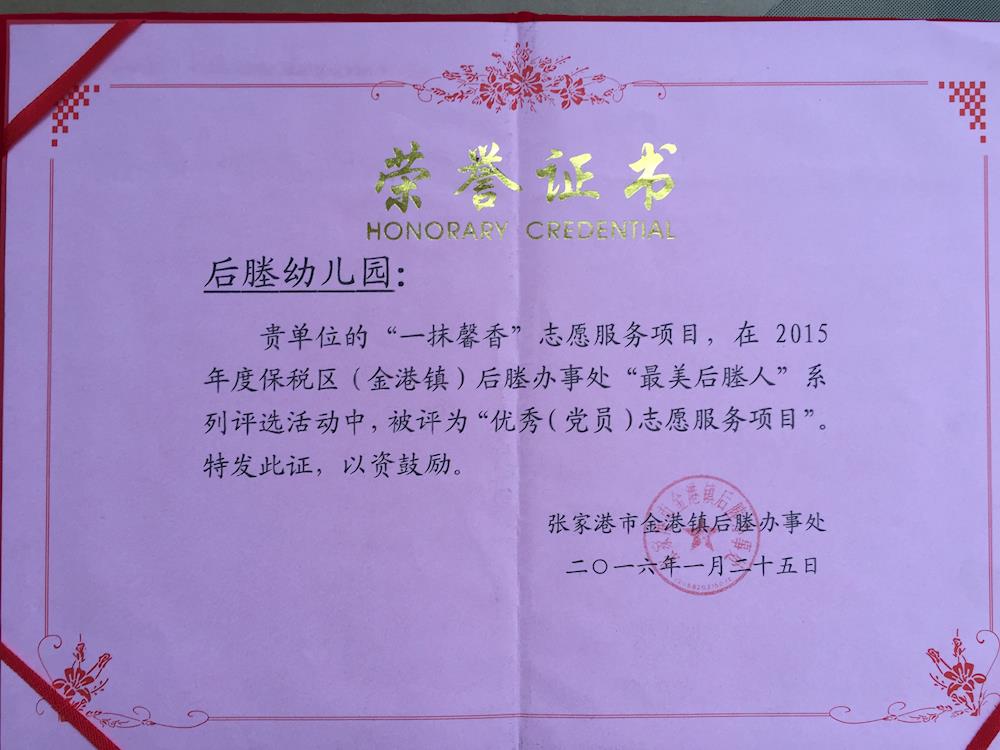 荣誉证书
HONORARY CREDENTIAL
后塍幼儿园：
贵单位的“一抹馨香”志愿服务项目，在 2015
年度保税区（金港镇）后塍办事处“最美后塍人”系
列评选活动中，被评为“优秀（党员）志愿服务项目”。
特发此证，以资鼓励。
张家港市金港镇后塍办事处
二〇一六年一月二十五日